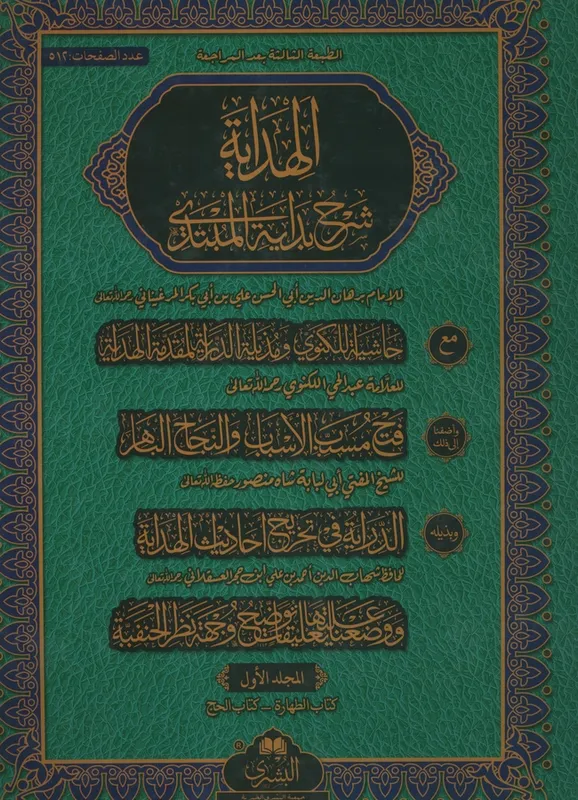 الطبعة الثالثة بعد المراجعة
عدد الصفحات: ٥١٢
الهداية
شرح بداية المبتدي
للإمام برهان الدين أبي الحسن علي بن أبي بكر المرغيناني رحمه الله تعالى
مع
حاشية اللكنوي ومذيلة الدراية لمقدمة الهداية
للعلامة عبد الحي اللكنوي رحمه الله تعالى
وأضفنا إلى ذلك
فتح مسبب الأسباب والنجاح الباهر
للشيخ المفتي أبي لبابة شاه منصور حفظه الله تعالى
وبذيله
الدراية في تخريج أحاديث الهداية
للحافظ شهاب الدين أحمد بن علي ابن حجر العسقلاني رحمه الله تعالى
ووضعنا عليه تعليقات توضيح وجهة نظر الحنفية
المجلد الأول
كتاب الطهارة – كتاب الحج
البشرى